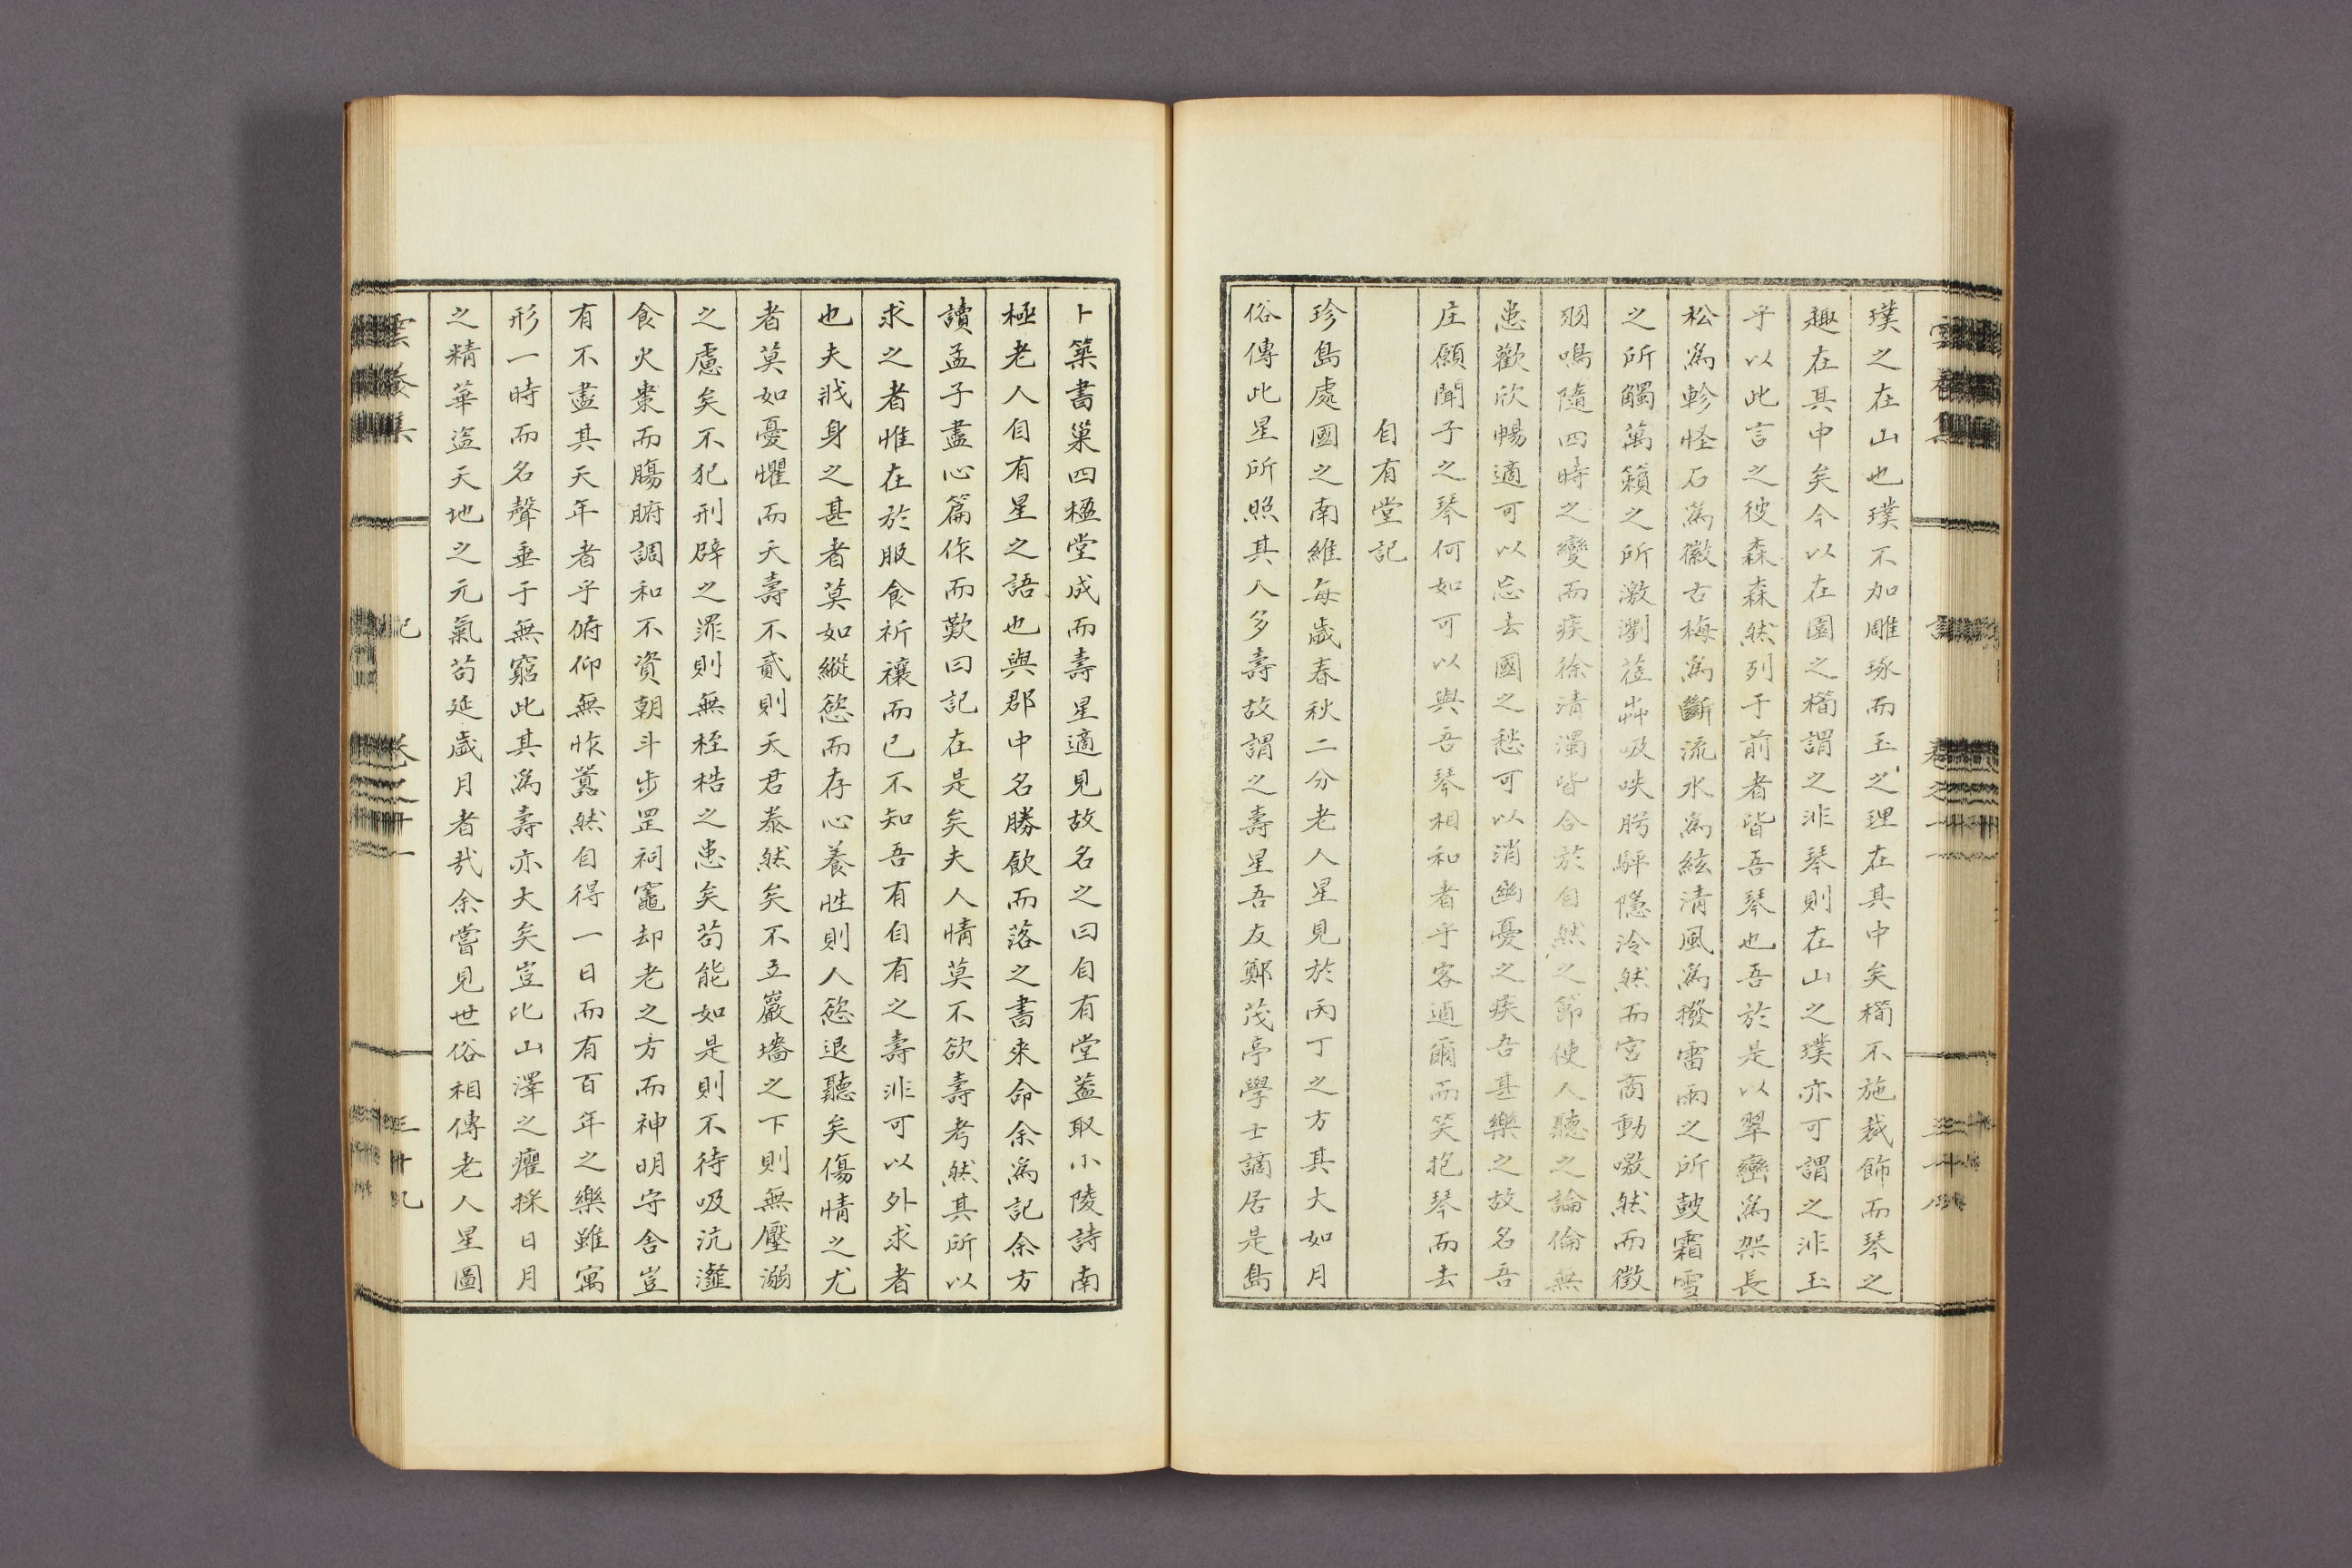 璞之在山也璞不加雕琢而玉之理在其中矣榴不施裁飾而琴之
趣在其中矣今以在園之榴謂之非琴則在山之璞亦可謂之非玉
乎以此言之彼森森然列于前者皆吾琴也吾於是以翠巒爲架長
松爲軫怪石爲徽古梅爲斷流水爲絃清風爲撥雷雨之所鼓霜雪
之所觸萬籟之所激瀏莅芔吸咉肹駍隱泠然而宮商動噭然而徵
羽鳴隨四時之變而疾徐清濁皆合於自然之節使人聽之論倫無
患歡欣暢適可以忘去國之愁可以消幽憂之疾吾甚樂之故名吾
庄願聞子之琴何如可以與吾琴相和者乎客逌爾而笑抱琴而去
自有堂記
珍島處國之南維每歲春秋二分老人星見於丙丁之方其大如月
俗傳此星所照其人多壽故謂之壽星吾友鄭茂亭學士謫居是島
卜築書巢四楹堂成而壽星適見故名之曰自有堂蓋取小陵詩南
極老人自有星之語也與郡中名勝飮而落之書來命余爲記余方
讀孟子盡心篇作而歎曰記在是矣夫人情莫不欲壽考然其所以
求之者惟在於服食祈禳而已不知吾有自有之壽非可以外求者
也夫戕身之甚者莫如縱慾而存心養性則人慾退聽矣傷情之尤
者莫如憂懼而夭壽不貳則天君泰然矣不立巖墻之下則無壓溺
之慮矣不犯刑辟之罪則無桎梏之患矣苟能如是則不待吸沆瀣
食火棗而腸腑調和不資朝斗步罡祠竈却老之方而神明守舍豈
有不盡其天年者乎俯仰無怍囂然自得一日而有百年之樂雖寓
形一時而名聲垂于無窮此其爲壽亦大矣豈比山澤之癯採日月
之精華盜天地之元氣苟延歲月者哉余嘗見世俗相傳老人星圖
雲養集
記
卷之十一
三十九